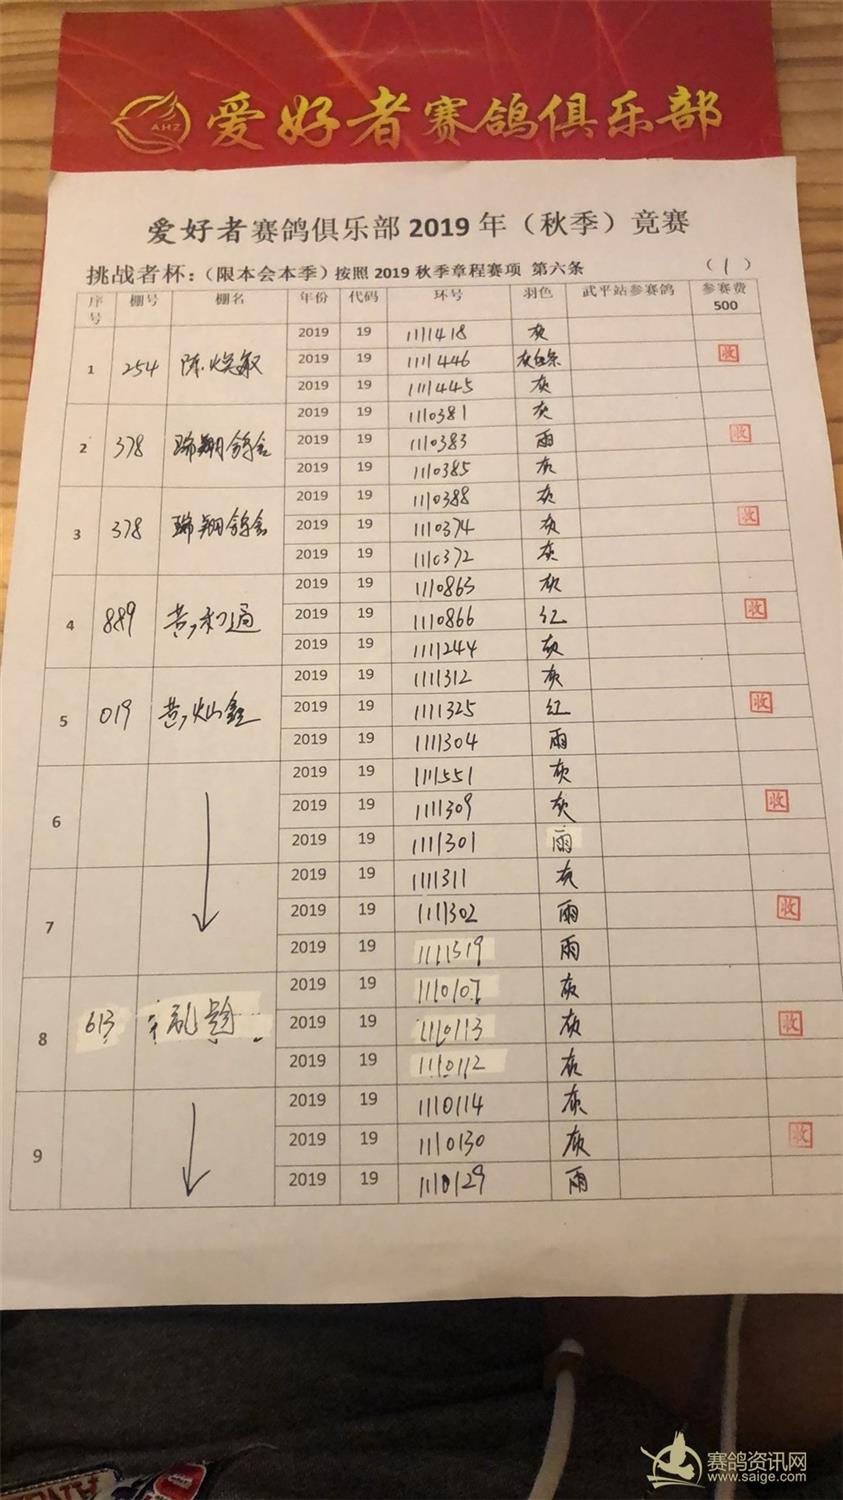 AHZ 爱好者赛鸽俱乐部
爱好者赛鸽俱乐部 2019 年（秋季）竟赛
挑战者杯：（限本会本季）按照 2019 秋季章程赛项 第六条 （1）
序号 棚号 棚名 年份 代码 环号 羽色 武平站参赛鸽 参赛费 500
2019 19 1111418 灰
1 254 陈焕敏 2019 19 1111446 灰白条 收
2019 19 1111445 灰
2019 19 1110381 灰
2 378 瑞翔鸽舍 2019 19 1110383 雨 收
2019 19 1110385 灰
2019 19 1110388 灰
3 378 瑞翔鸽舍 2019 19 1110374 灰 收
2019 19 1110372 灰
2019 19 1110863 灰
4 889 黄和通 2019 19 1110866 红 收
2019 19 1111244 灰
2019 19 1111312 灰
5 019 黄灿鑫 2019 19 1111325 红 收
2019 19 1111304 雨
2019 19 1111551 灰
6 2019 19 1111309 灰 收
2019 19 1111301 雨
2019 19 1111311 灰
7 2019 19 1111302 雨 收
2019 19 1111319 雨
2019 19 1110107 灰
8 613 2019 19 1110113 灰 收
2019 19 1110112 灰
2019 19 1110114 灰
9 2019 19 1110130 灰 收
2019 19 1110129 雨
赛鸽资讯网
www.saige.com